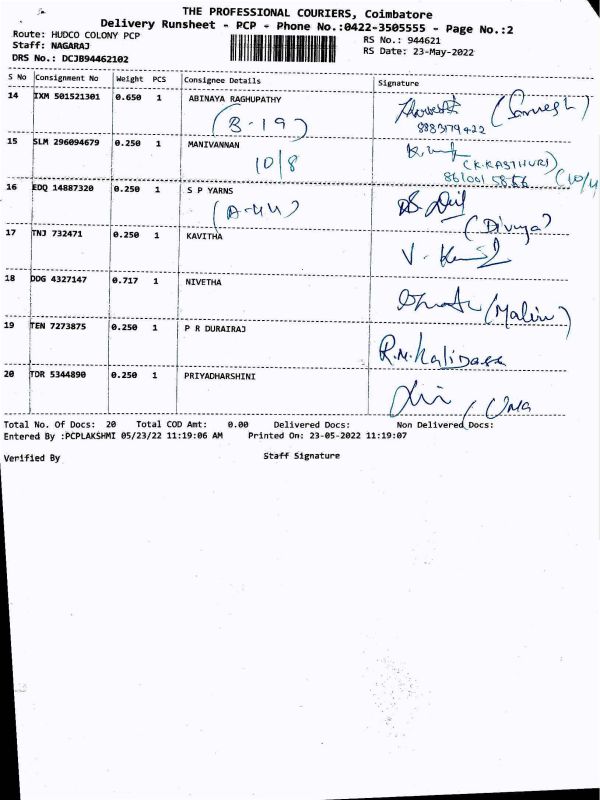 THE PROFESSIONAL COURIERS, Coimbatore
Delivery Runsheet - PCP - Phone No.:0422-3505555 - Page No.:2
Route: HUDCO COLONY PCP
RS No.: 944621
Staff: NAGARAJ
RS Date: 23-May-2022
DRS No.: DCJB94462102
S No Consignment No Weight PCS Consignee Details Signature
14 IXM 501521301 0.650 1 ABINAYA RAGHUPATHY
(B-19)
15 SLM 296094679 0.250 1 MANIVANNAN
10/8 (K.KASTHURI)
16 EDQ 14887320 0.250 1 S P YARNS
(A-44) (Divya)
17 TNJ 732471 0.250 1 KAVITHA
18 DDG 4327147 0.717 1 NIVETHA
(Malini)
19 TEN 7273875 0.250 1 P R DURAIRAJ
R.N.Kalidass
20 TDR 5344890 0.250 1 PRIYADHARSHINI
/ Uma
Total No. Of Docs: 20 Total COD Amt: 0.00 Delivered Docs: Non Delivered Docs:
Entered By :PCPLAKSHMI 05/23/22 11:19:06 AM Printed On: 23-05-2022 11:19:07
Verified By Staff Signature